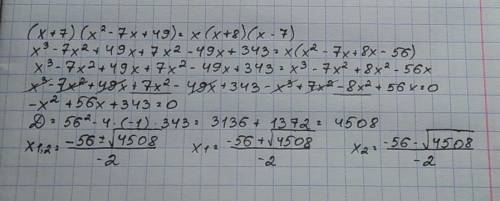 (x+7)(x²-7x+49)=x(x+8)(x-7)
x³-7x²+49x+7x²-49x+343=x(x²-7x+8x-56)
x³-7x²+49x+7x²-49x+343=x³-7x²+8x²-56x
x³-7x²+49x+7x²-49x+343-x³+7x²-8x²+56x=0
-x²+56x+343=0
D=56²-4·(-1)·343=3136+1372=4508
x₁,₂=(-56±√4508)/-2 x₁=(-56+√4508)/-2 x₂=(-56-√4508)/-2